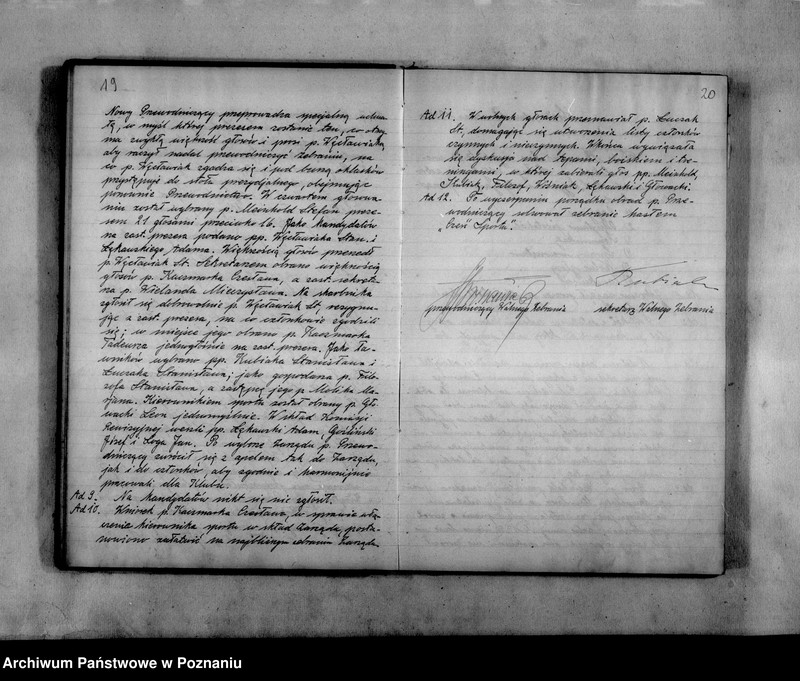 19
Nowy Przewodniczący przeprowadza specjalną uchwa-
łę, w myśl której prezesem zostanie ten, co otrzy-
ma zwykłą większość głosów i prosi p. Węcławiaka,
aby raczył nadal przewodniczyć zebraniu, na
co p. Węcławiak zgadza się i pod burzą oklasków
przystępuje do stołu prezydjalnego, obejmując
ponownie Przewodnictwo. W czwartem głosowa-
niu został wybrany p. Meinhold Stefan preze-
sem 21 głosami przeciwko 16. Jako kandydatów
na zast. prezesa podano pp. Węcławiaka Stan. i
Łękawskiego Adama. Większością głosów przeszedł
p. Węcławiak St. Sekretarzem obrano większością
głosów p. Kaczmarka Czesława, a zast. sekreta-
rza p. Wielanda Mieczysława. Na skarbnika
zgłosił się dobrowolnie p. Węcławiak St., rezygnu-
jąc z zast. prezesa, na co członkowie zgodzili
się; w miejsce jego obrano p. Kaczmarka
Tadeusza jednogłośnie na zast. prezesa. Jako ła-
wników wybrano pp. Kubiaka Stanisława i
Łuczaka Stanisława; jako gospodarza p. Filo-
zofa Stanisława, a zastępcę jego p. Molika Ma-
rjana. Kierownikiem sportu został obrany p. Gło-
wacki Leon jednomyślnie. W skład Komisji
Rewizyjnej weszli pp. Łękawski Adam, Gośliński
Józef i Loga Jan. Po wyborze Zarządu p. Przewo-
dniczący zwrócił się z apelem tak do Zarządu,
jak i do członków, aby zgodnie i harmonijnie
pracowali dla Klubu.
Ad 9. Na kandydatów nikt się nie zgłosił.
Ad 10. Wniosek p. Kaczmarka Czesława, w sprawie włą-
czenia kierownika sportu w skład Zarządu, posta-
nowiono załatwić na najbliższym zebraniu Zarządu.
20
Ad 11. W wolnych głosach przemawiał p. Łuczak
St., domagając się utworzenia listy członków
czynnych i nieczynnych. Wkońcu wywiązała
się dyskusja nad sprawami, boiskiem i tre-
ningami, w której zabierali głos pp. Meinhold,
Kubiak, Filozof, Woźniak, Łękawski i Głowacki.
Ad 12. Po wyczerpaniu porządku obrad p. Prze-
wodniczący solwował zebranie hasłem
"Cześć Sportu".
Kubiak
przewodniczący Walnego Zebrania
sekretarz Walnego Zebrania
Archiwum Państwowe w Poznaniu